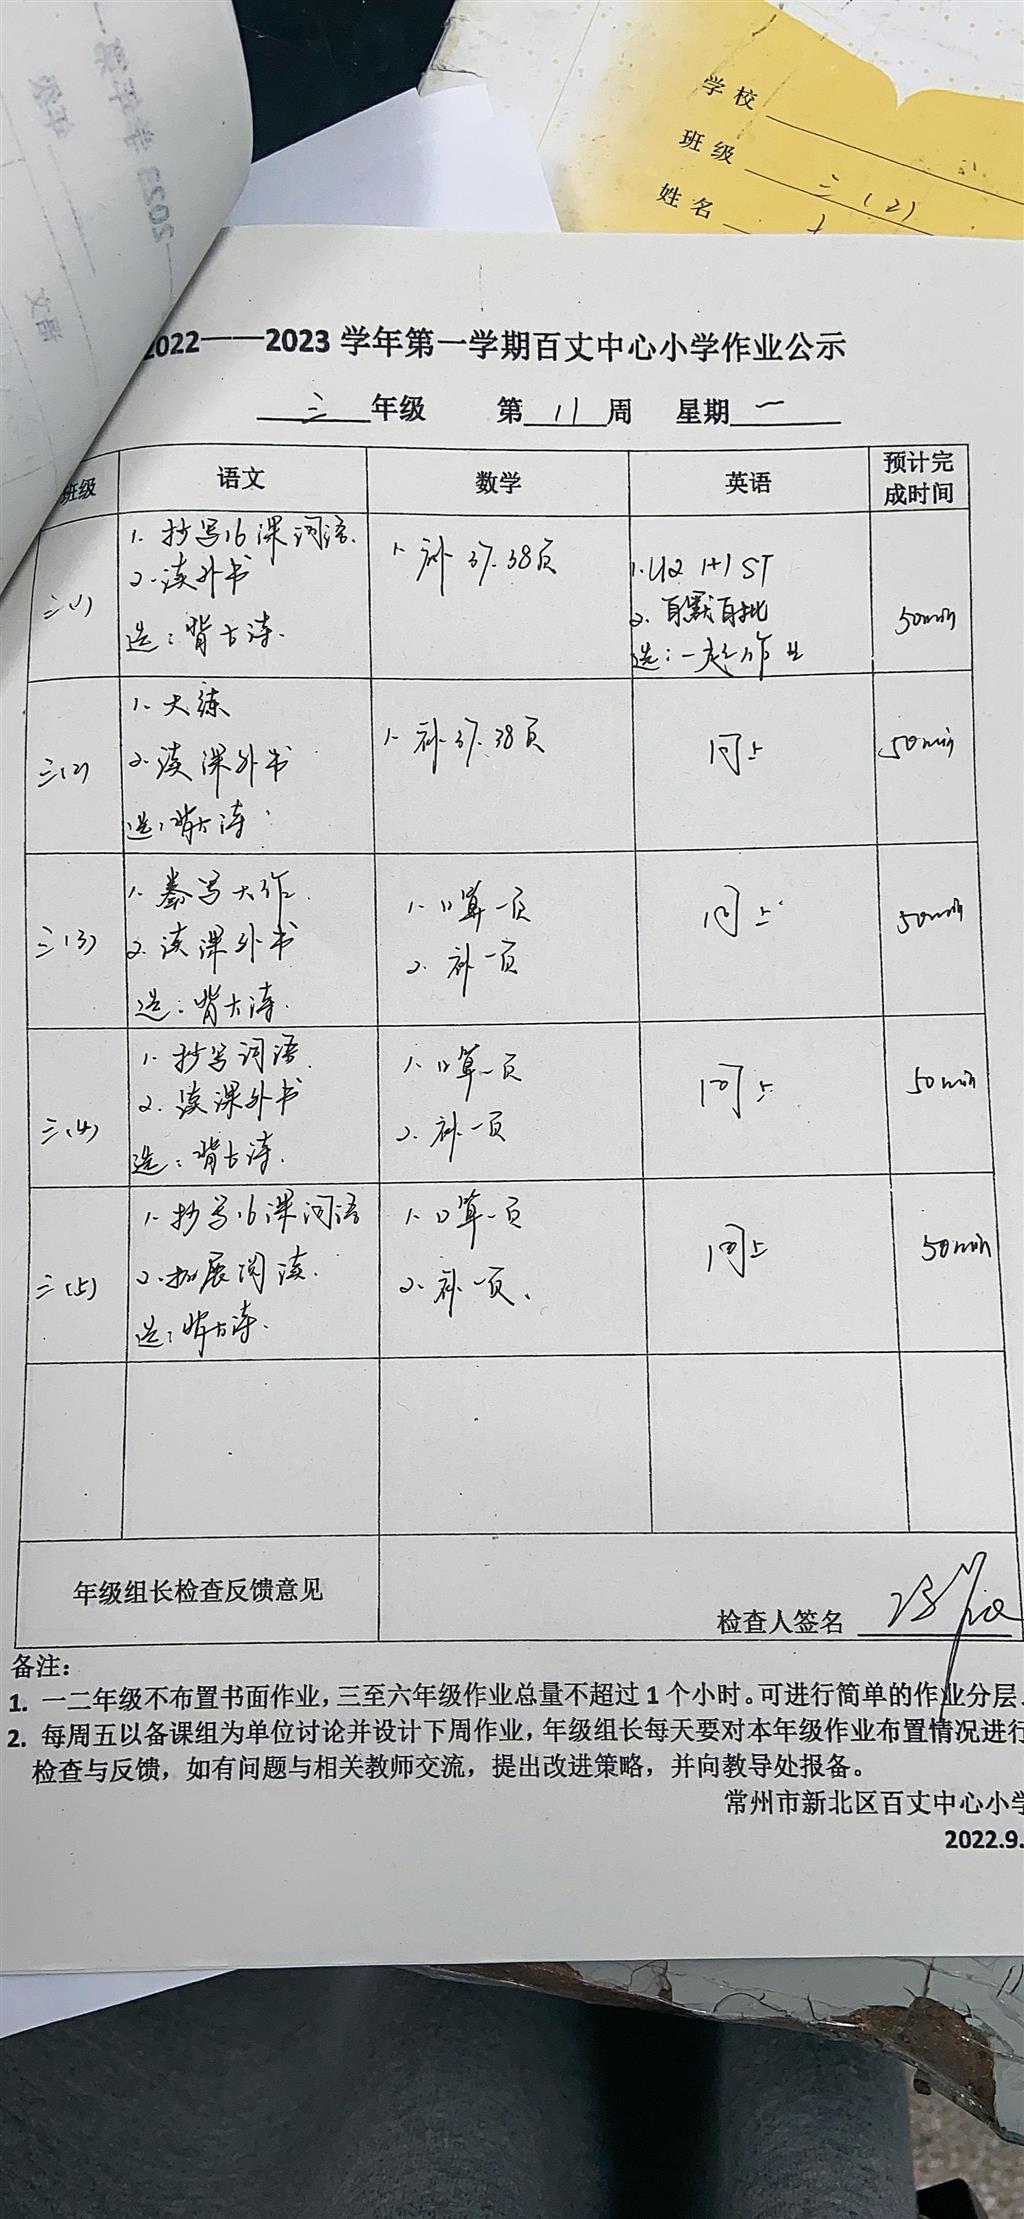 学校
班级 三(2)
姓名
2022——2023学年第一学期百丈中心小学作业公示
三 年级 第 11 周 星期 一
班级 语文 数学 英语 预计完成时间
三(1)
1. 抄写16课词语.
2. 读外书
选：背古诗.
1. 补37.38页
1. U2 听 ST
2. 自默自批
选：一起作业
50min
三(2)
1. 大练
2. 读课外书
选：背古诗
1. 补37.38页
同上
50min
三(3)
1. 誊写大作.
2. 读课外书
选：背古诗.
1. 口算一页
2. 补一页
同上
50min
三(4)
1. 抄写词语.
2. 读课外书
选：背古诗.
1. 口算一页
2. 补一页
同上
50min
三(5)
1. 抄写16课词语
2. 拓展阅读.
选：背古诗.
1. 口算一页
2. 补一页.
同上
50min
年级组长检查反馈意见
检查人签名
备注：
1. 一二年级不布置书面作业，三至六年级作业总量不超过1个小时。可进行简单的作业分层、
2. 每周五以备课组为单位讨论并设计下周作业，年级组长每天要对本年级作业布置情况进行
检查与反馈，如有问题与相关教师交流，提出改进策略，并向教导处报备。
常州市新北区百丈中心小学
2022.9.